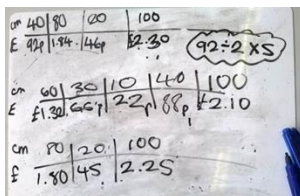 cm 40 80 20 100
£ 92p 1.84 46p £2.30
92÷2×5
cm 60 30 10 40 100
£ £1.32 66p 22p 88p £2.10
cm 80 20 100
£ 1.80 45 2.25